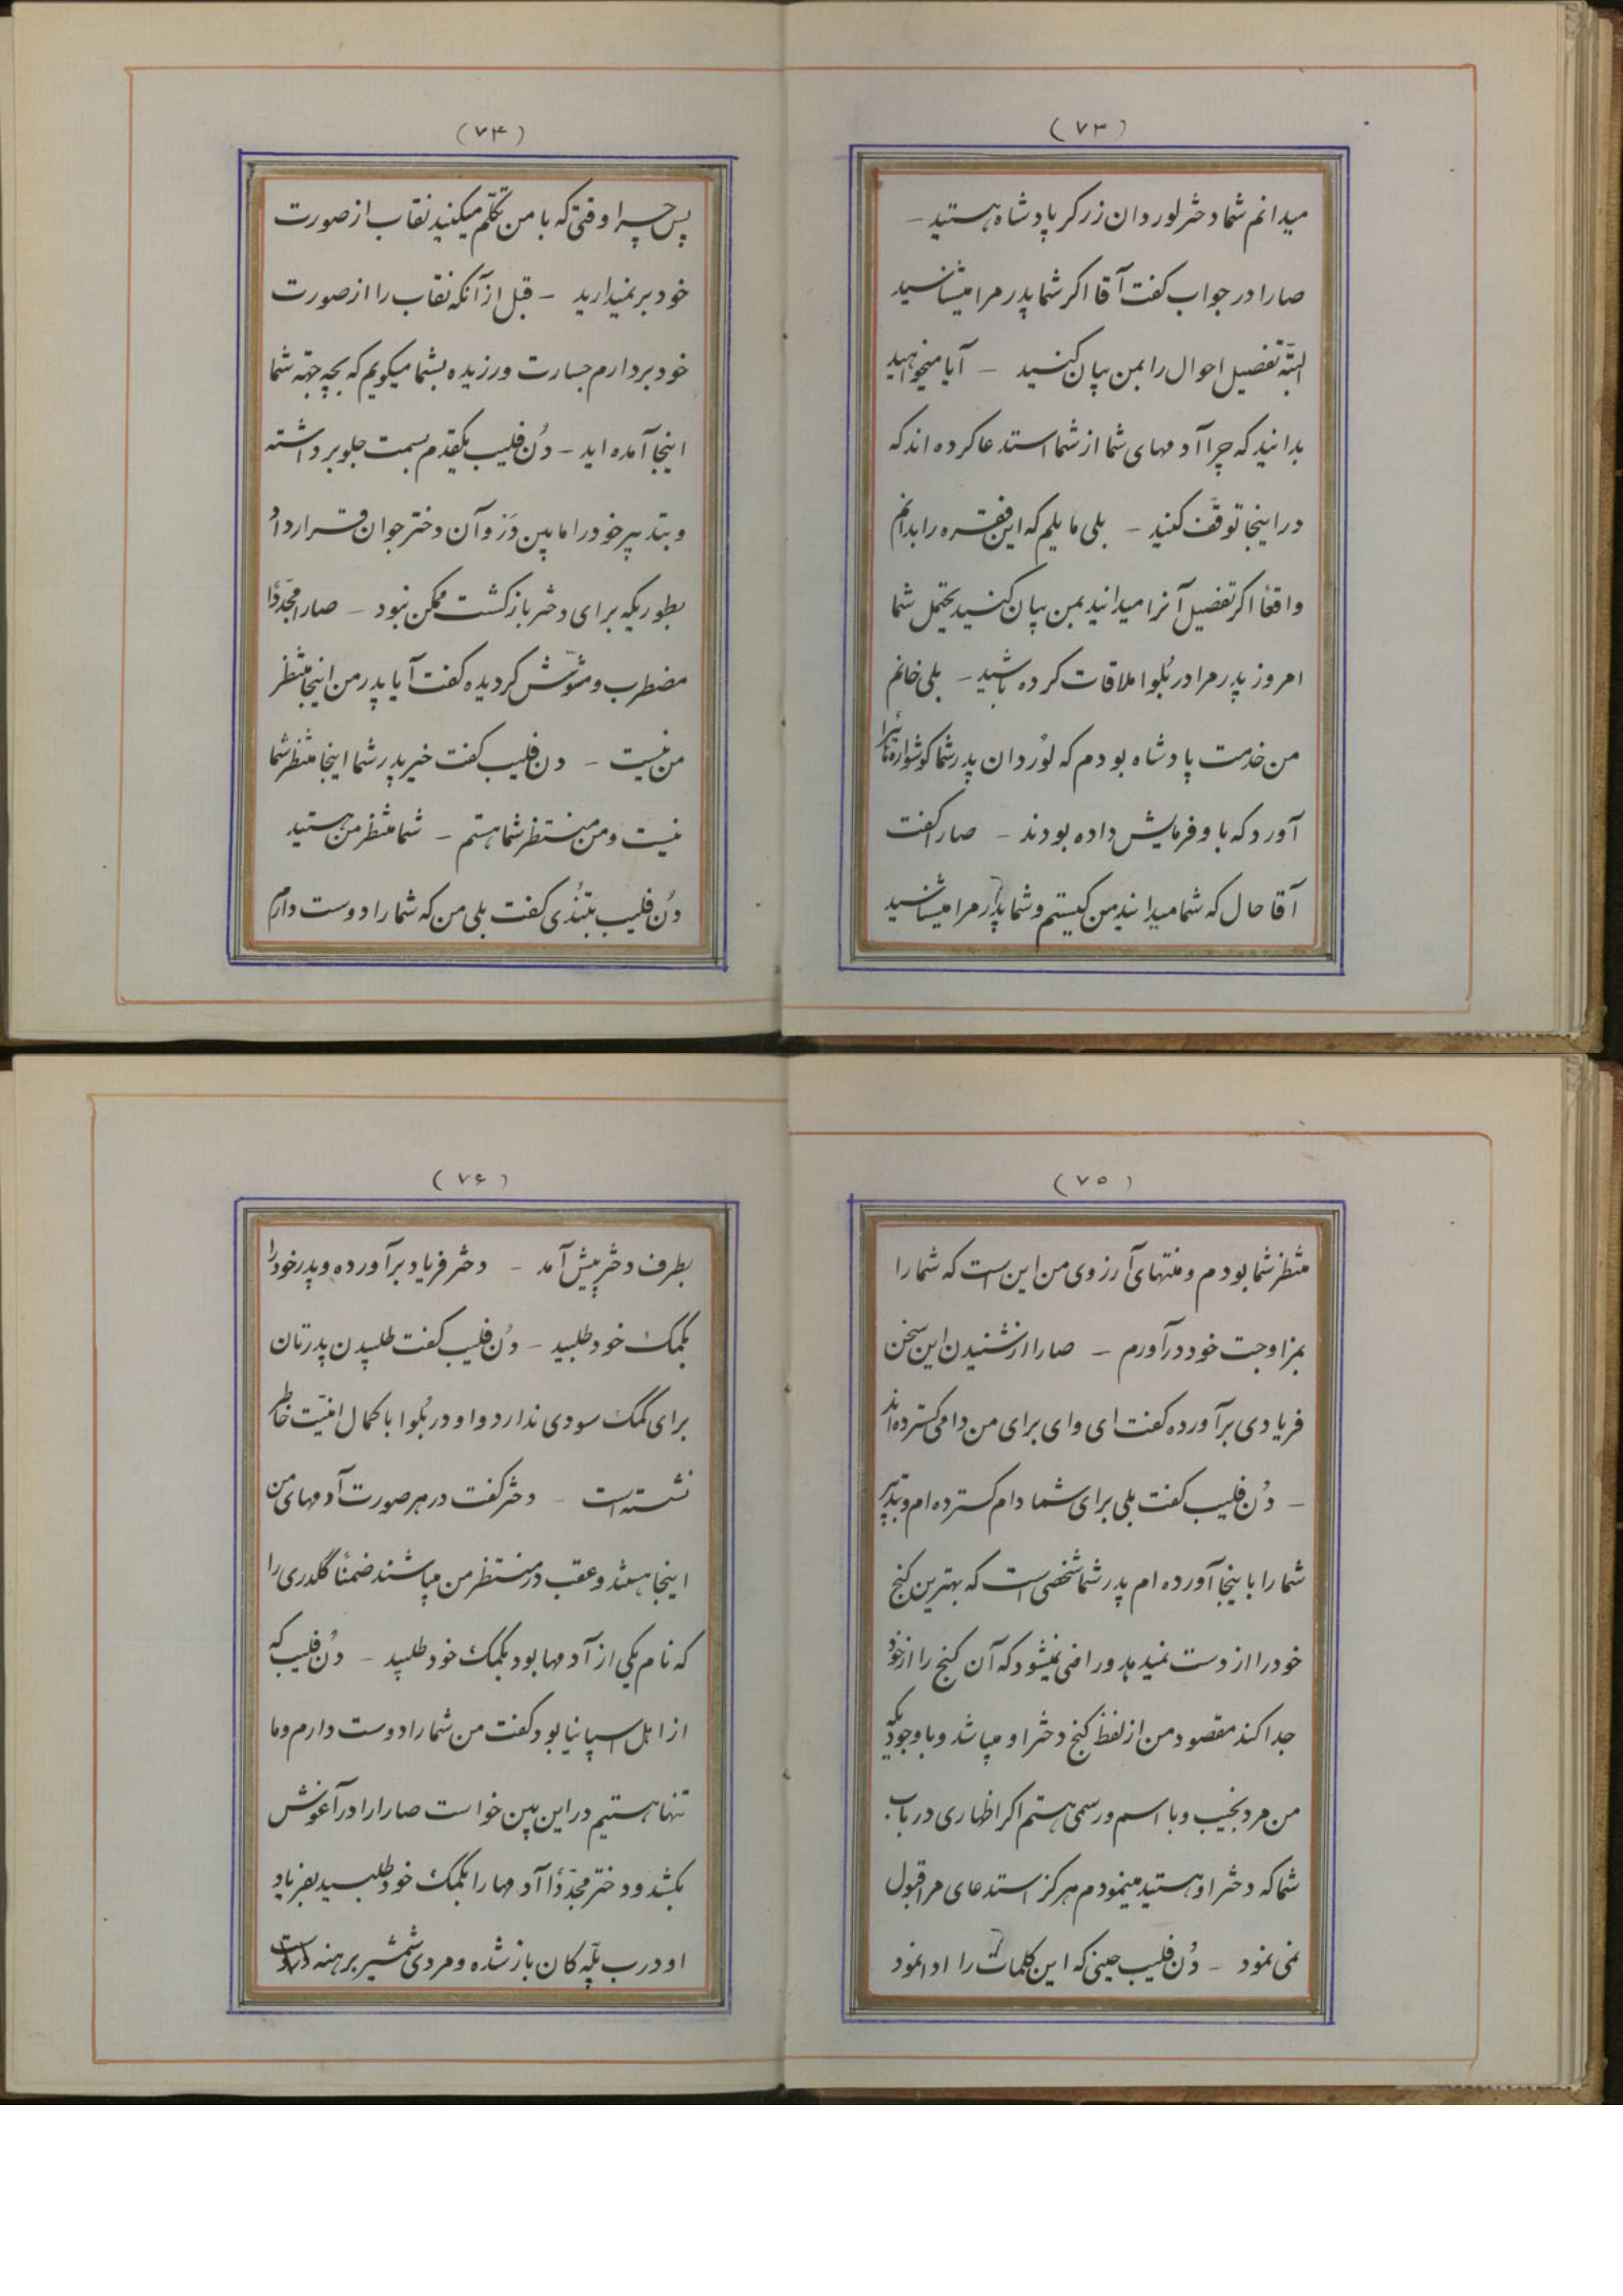 (۷۳)
میدانم شما دختر لوردان زرگر پادشاه هستید –
صارا در جواب گفت آقا اگر شما پدر مرا میشناسید
البتّه تفصیل احوال را بمن بیان کنید – آیا میخواهید
بدانید که چرا آدمهای شما از شما استدعا کرده اند که
در اینجا توقّف کنید – بلی مایلم که این فقره را بدانم
واقعاً اگر تفصیل آنرا میدانید بمن بیان کنید یحتمل شما
امروز پدر مرا در بُلوا ملاقات کرده باشید – بلی خانم
من خدمت پادشاه بودم که لوُردان پدر شما گوشواره هائیرا
آورد که باو فرمایش داده بودند – صارا گفت
آقا حال که شما میدانید من کیستم و شما پدر مرا میشناسید
(۷۴)
پس چرا وقتی که با من تکلّم میکنید نقاب از صورت
خود بر نمیدارید – قبل از آنکه نقاب را از صورت
خود بردارم جسارت ورزیده بشما میگویم که بچه جهته شما
اینجا آمده اید – دُن فلیب یکقدم بسمت جلو برداشته
و بتدبیر خود را مابین دَرْ و آن دختر جوان قرار داد
بطوریکه برای دختر بازگشت ممکن نبود – صارا مجدّداً
مضطرب و مشوّش گردیده گفت آیا پدر من اینجا منتظر
من نیست – دن فلیب گفت خیر پدر شما اینجا منتظر شما
نیست و من منتظر شما هستم – شما منتظر من هستید
دُن فلیب بتُندی گفت بلی من که شما را دوست دارم
(۷۵)
منتظر شما بودم و منتهای آرزوی من این است که شما را
بمزاوجت خود درآورم – صارا از شنیدن این سخن
فریادی برآورده گفت ای وای برای من دامی گسترده اند
– دُن فلیب گفت بلی برای شما دام گسترده ام و بتدبیر
شما را باینجا آورده ام پدر شما شخصی است که بهترین گنج
خود را از دست نمیدهد و راضی نمیشود که آن گنج را از خود
جدا کند مقصود من از لفظ گنج دختر او میباشد و با وجودیکه
من مرد نجیب و با اسم و رسمی هستم اگر اظهاری در باب
شما که دختر او هستید مینمودم هرگز استدعای مرا قبول
نمی نمود – دُن فلیب حینی که این کلمات را ادا نمود
(۷۶)
بطرف دختر پیش آمد – دختر فریاد برآورده و پدر خود را
بکمک خود طلبید – دُن فلیب گفت طلبیدن پدرتان
برای کمک سودی ندارد و او در بُلوا با کمال امنیّت خاطر
نشسته است – دختر گفت در هر صورت آدمهای من
اینجا هستند و عقب در منتظر من میباشند ضمناً گلدری را
که نام یکی از آدمها بود بکمک خود طلبید – دُن فلیب که
از اهل اسپانیا بود گفت من شما را دوست دارم و ما
تنها هستیم در این بین خواست صارا را در آغوش
بکشد و دختر مجدّداً آدمها را بکمک خود طلبید بفریاد
او درب پلّه کان باز شده و مردی شمشیر برهنه در دست